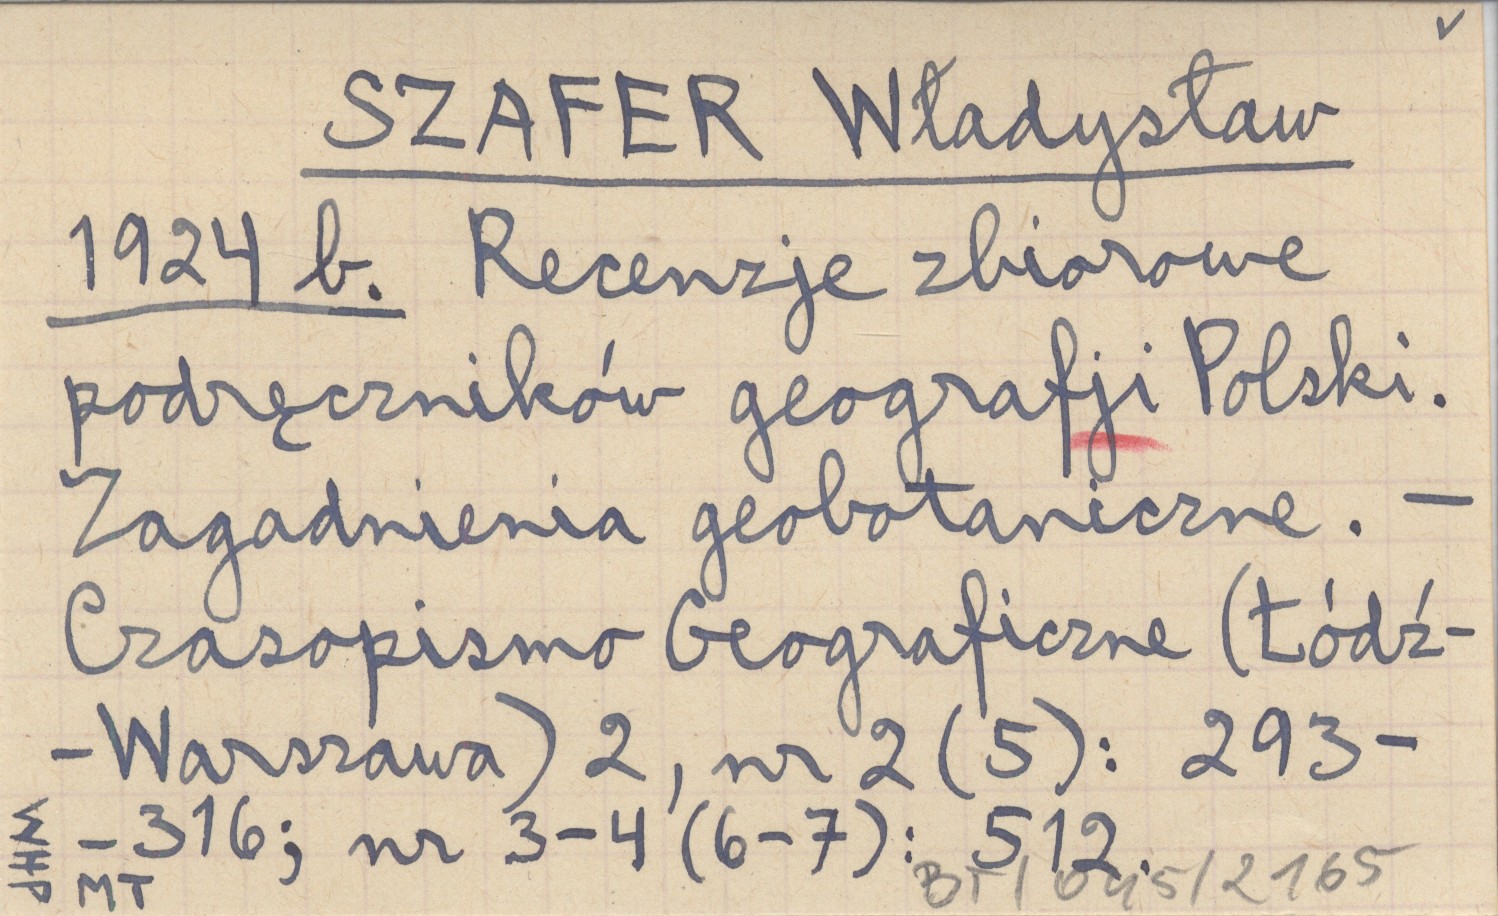 ✓
SZAFER Władysław
1924 b. Recenzje zbiorowe
podręczników geografji Polski.
Zagadnienia geobotaniczne. –
Czasopismo Geograficzne (Łódź-
-Warszawa) 2, nr 2 (5): 293-
-316; nr 3-4 (6-7): 512.
MT